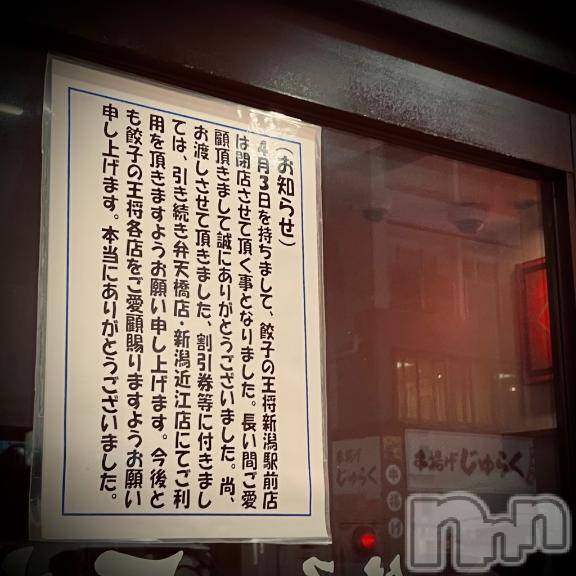 (お知らせ)
4月3日を持ちまして、餃子の王将新潟駅前店
は閉店させて頂く事となりました。長い間ご愛
顧頂きまして誠にありがとうございました。尚、
お渡しさせて頂きました、割引券等に付きまし
ては、引き続き弁天橋店・新潟近江店にてご利
用を頂きますようお願い申し上げます。今後と
も餃子の王将各店をご愛顧賜りますようお願い
申し上げます。本当にありがとうございました。
串揚げ じゅらく
串揚げ
串揚げ じゅらく
nnn